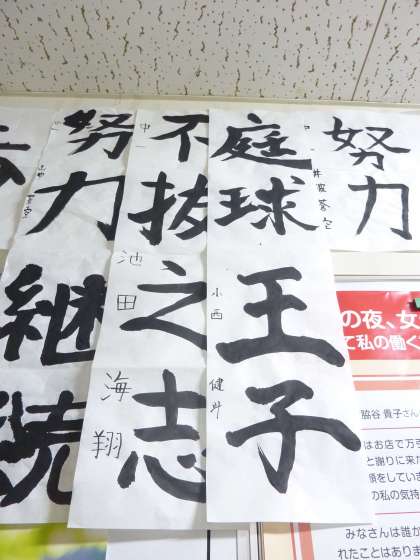 努力
庭球
王子
小西 健斗
不抜
之志
池田 海翔
努力
継続
の夜、女
て私の働く
脇谷 貴子さん
はお店で万
と謝りに来た
をしていま
の私の気持
みなさんは誰か
れたことはあり